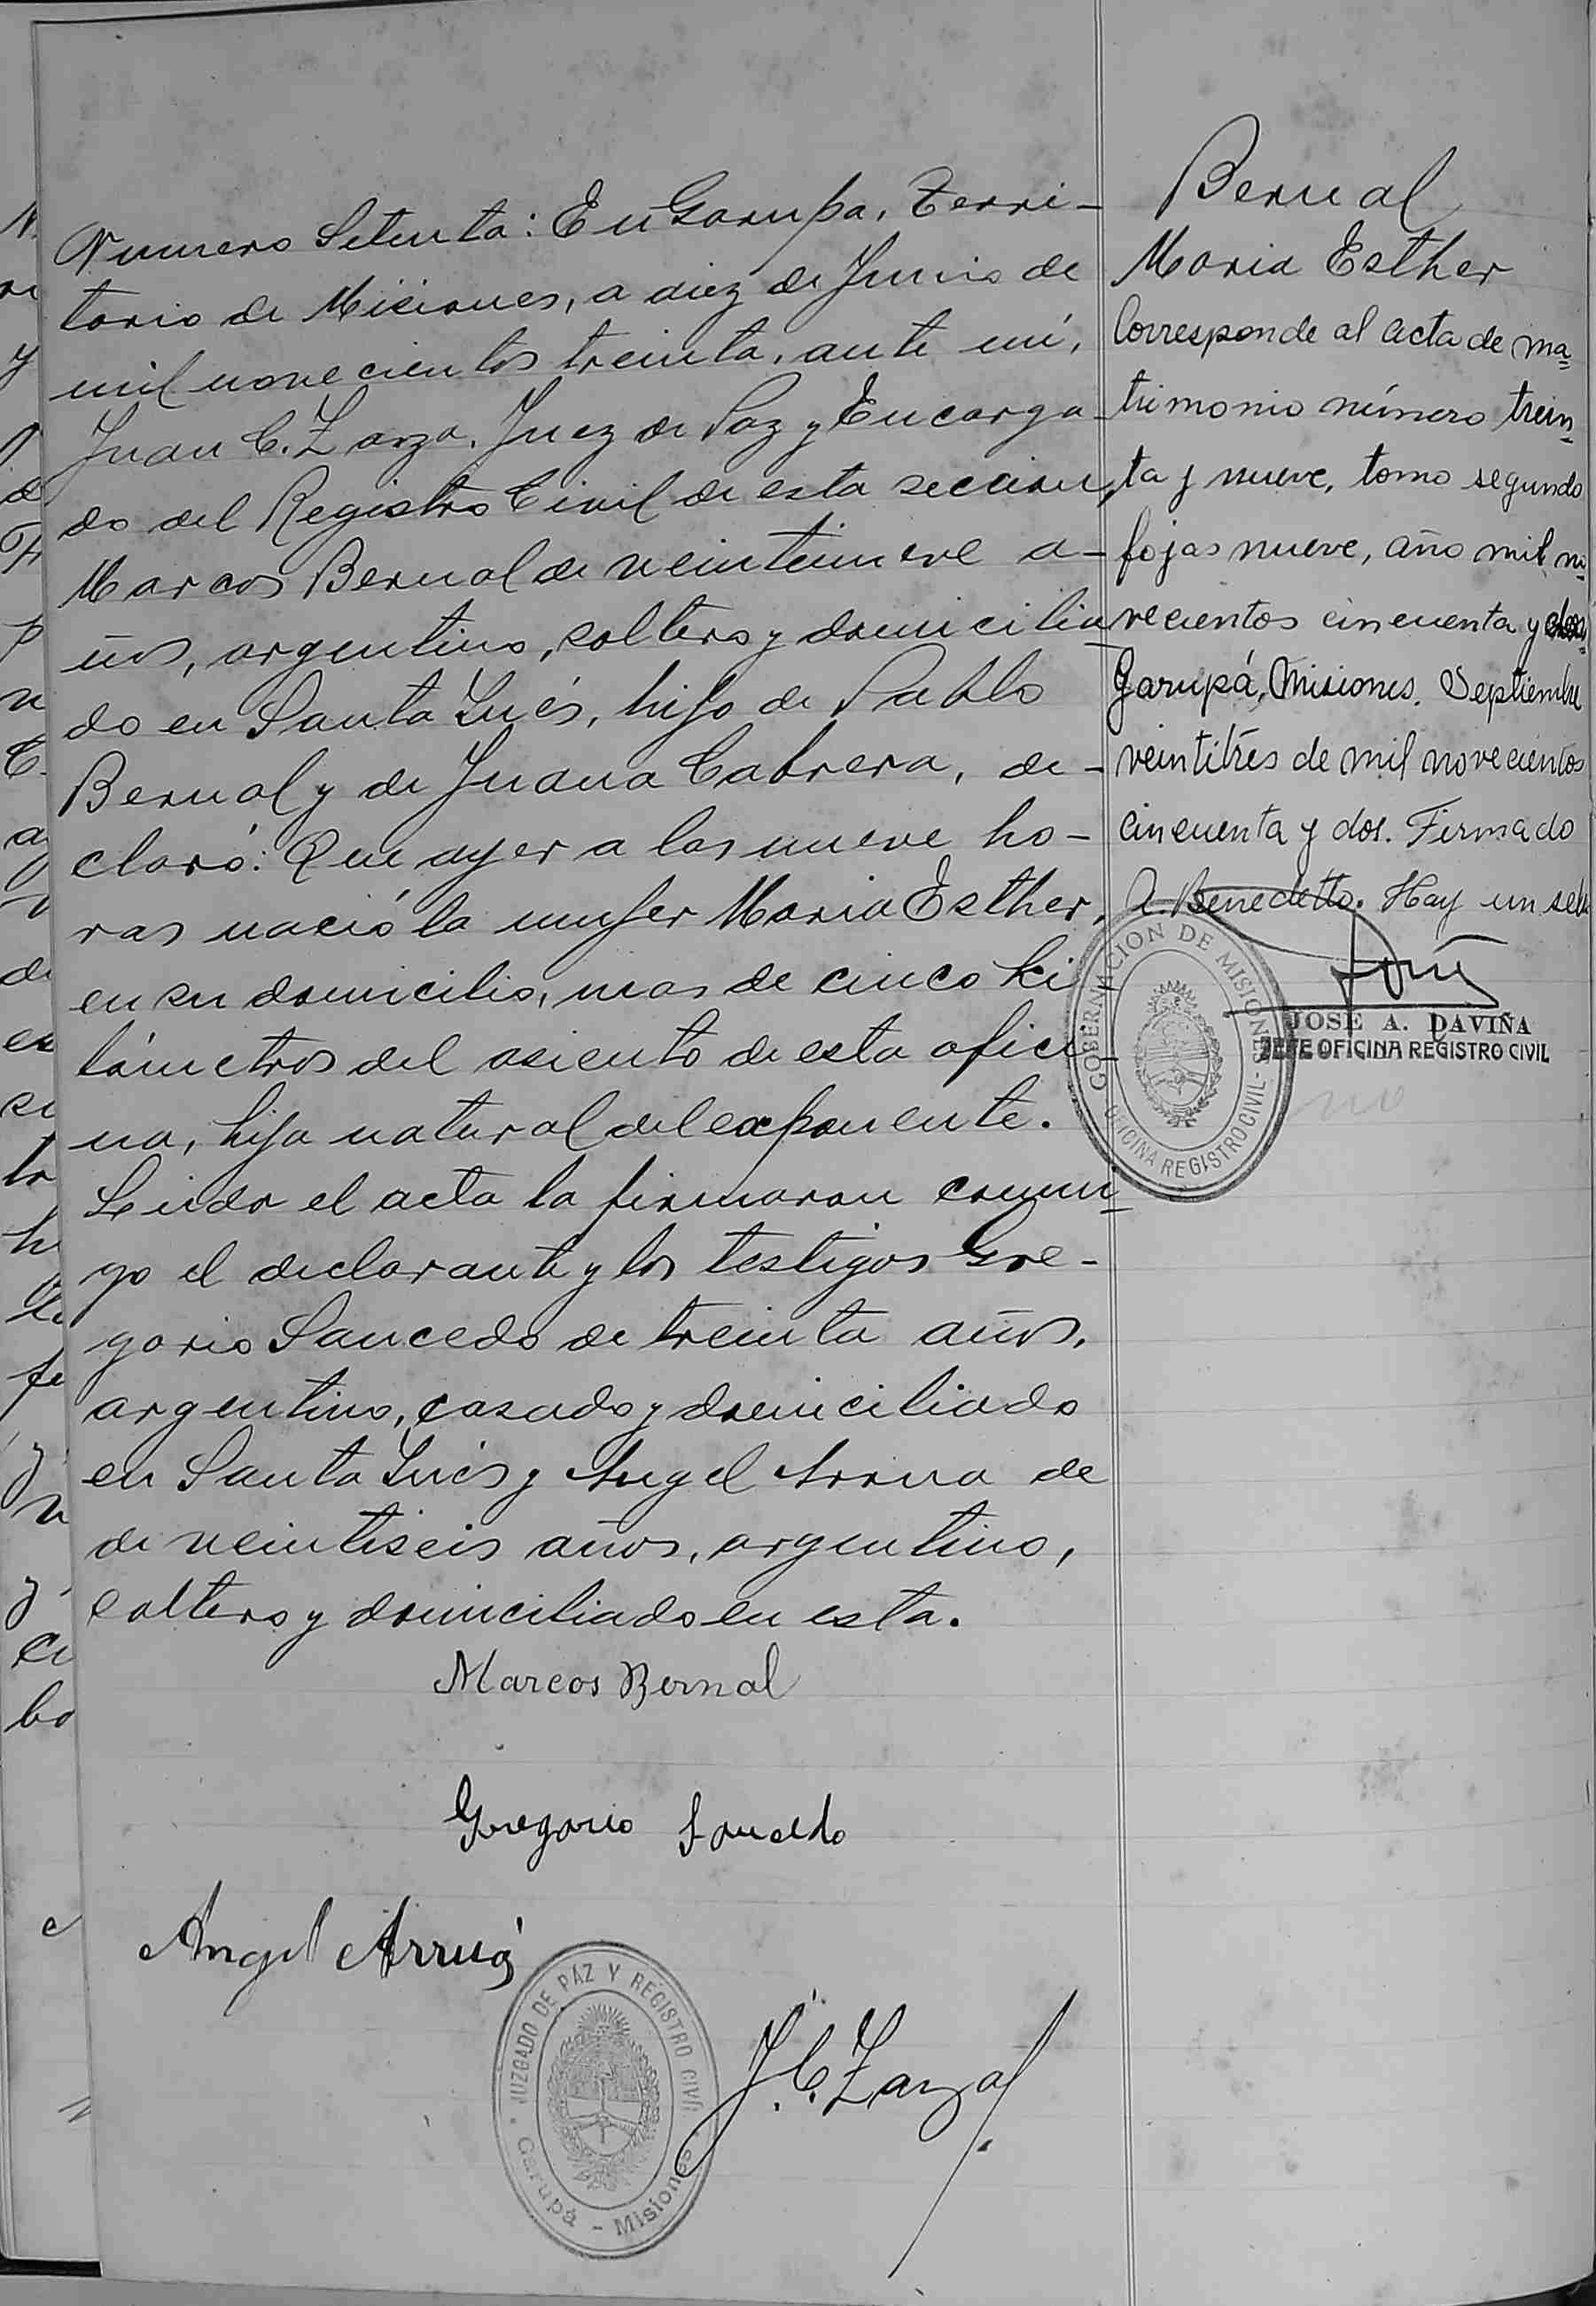 Numero Setenta: En Garupa, Terri-
torio de Misiones, a diez de Junio de
mil novecientos treinta, ante mi,
Juan C. Zarza, Juez de Paz y Encarga-
do del Registro Civil de esta seccion,
Marcos Bernal de veintinueve a-
ños, argentino, soltero y domicilia-
do en Santa Inés, hijo de Pablo
Bernal y de Juana Cabrera, de-
claró: Que ayer a las nueve ho-
ras nació la mujer Maria Esther,
en su domicilio, mas de cinco ki-
lómetros del asiento de esta ofici-
na, hija natural del exponente.
Leida el acta la firmaron conmi-
go el declarante y los testigos Gre-
gorio Saucedo de treinta años,
argentino, casado y domiciliado
en Santa Inés y Angel Arrua de
de veintiseis años, argentino,
soltero y domiciliado en esta.
Marcos Bernal
Gregorio Saucedo
Angel Arruá
J. C. Zarza
JUZGADO DE PAZ Y REGISTRO CIVIL
Garupá - Misiones
Bernal
Maria Esther
Corresponde al acta de ma=
trimonio número trein=
ta y nueve, tomo segundo
fojas nueve, año mil no=
vecientos cincuenta y
Garupá, Misiones. Septiembre
veintitrés de mil novecientos
cincuenta y dos. Firmado
A. Benedetto. Hay un sello
GOBERNACION DE MISIONES
OFICINA REGISTRO CIVIL
JOSE A. DAVIÑA
JEFE OFICINA REGISTRO CIVIL